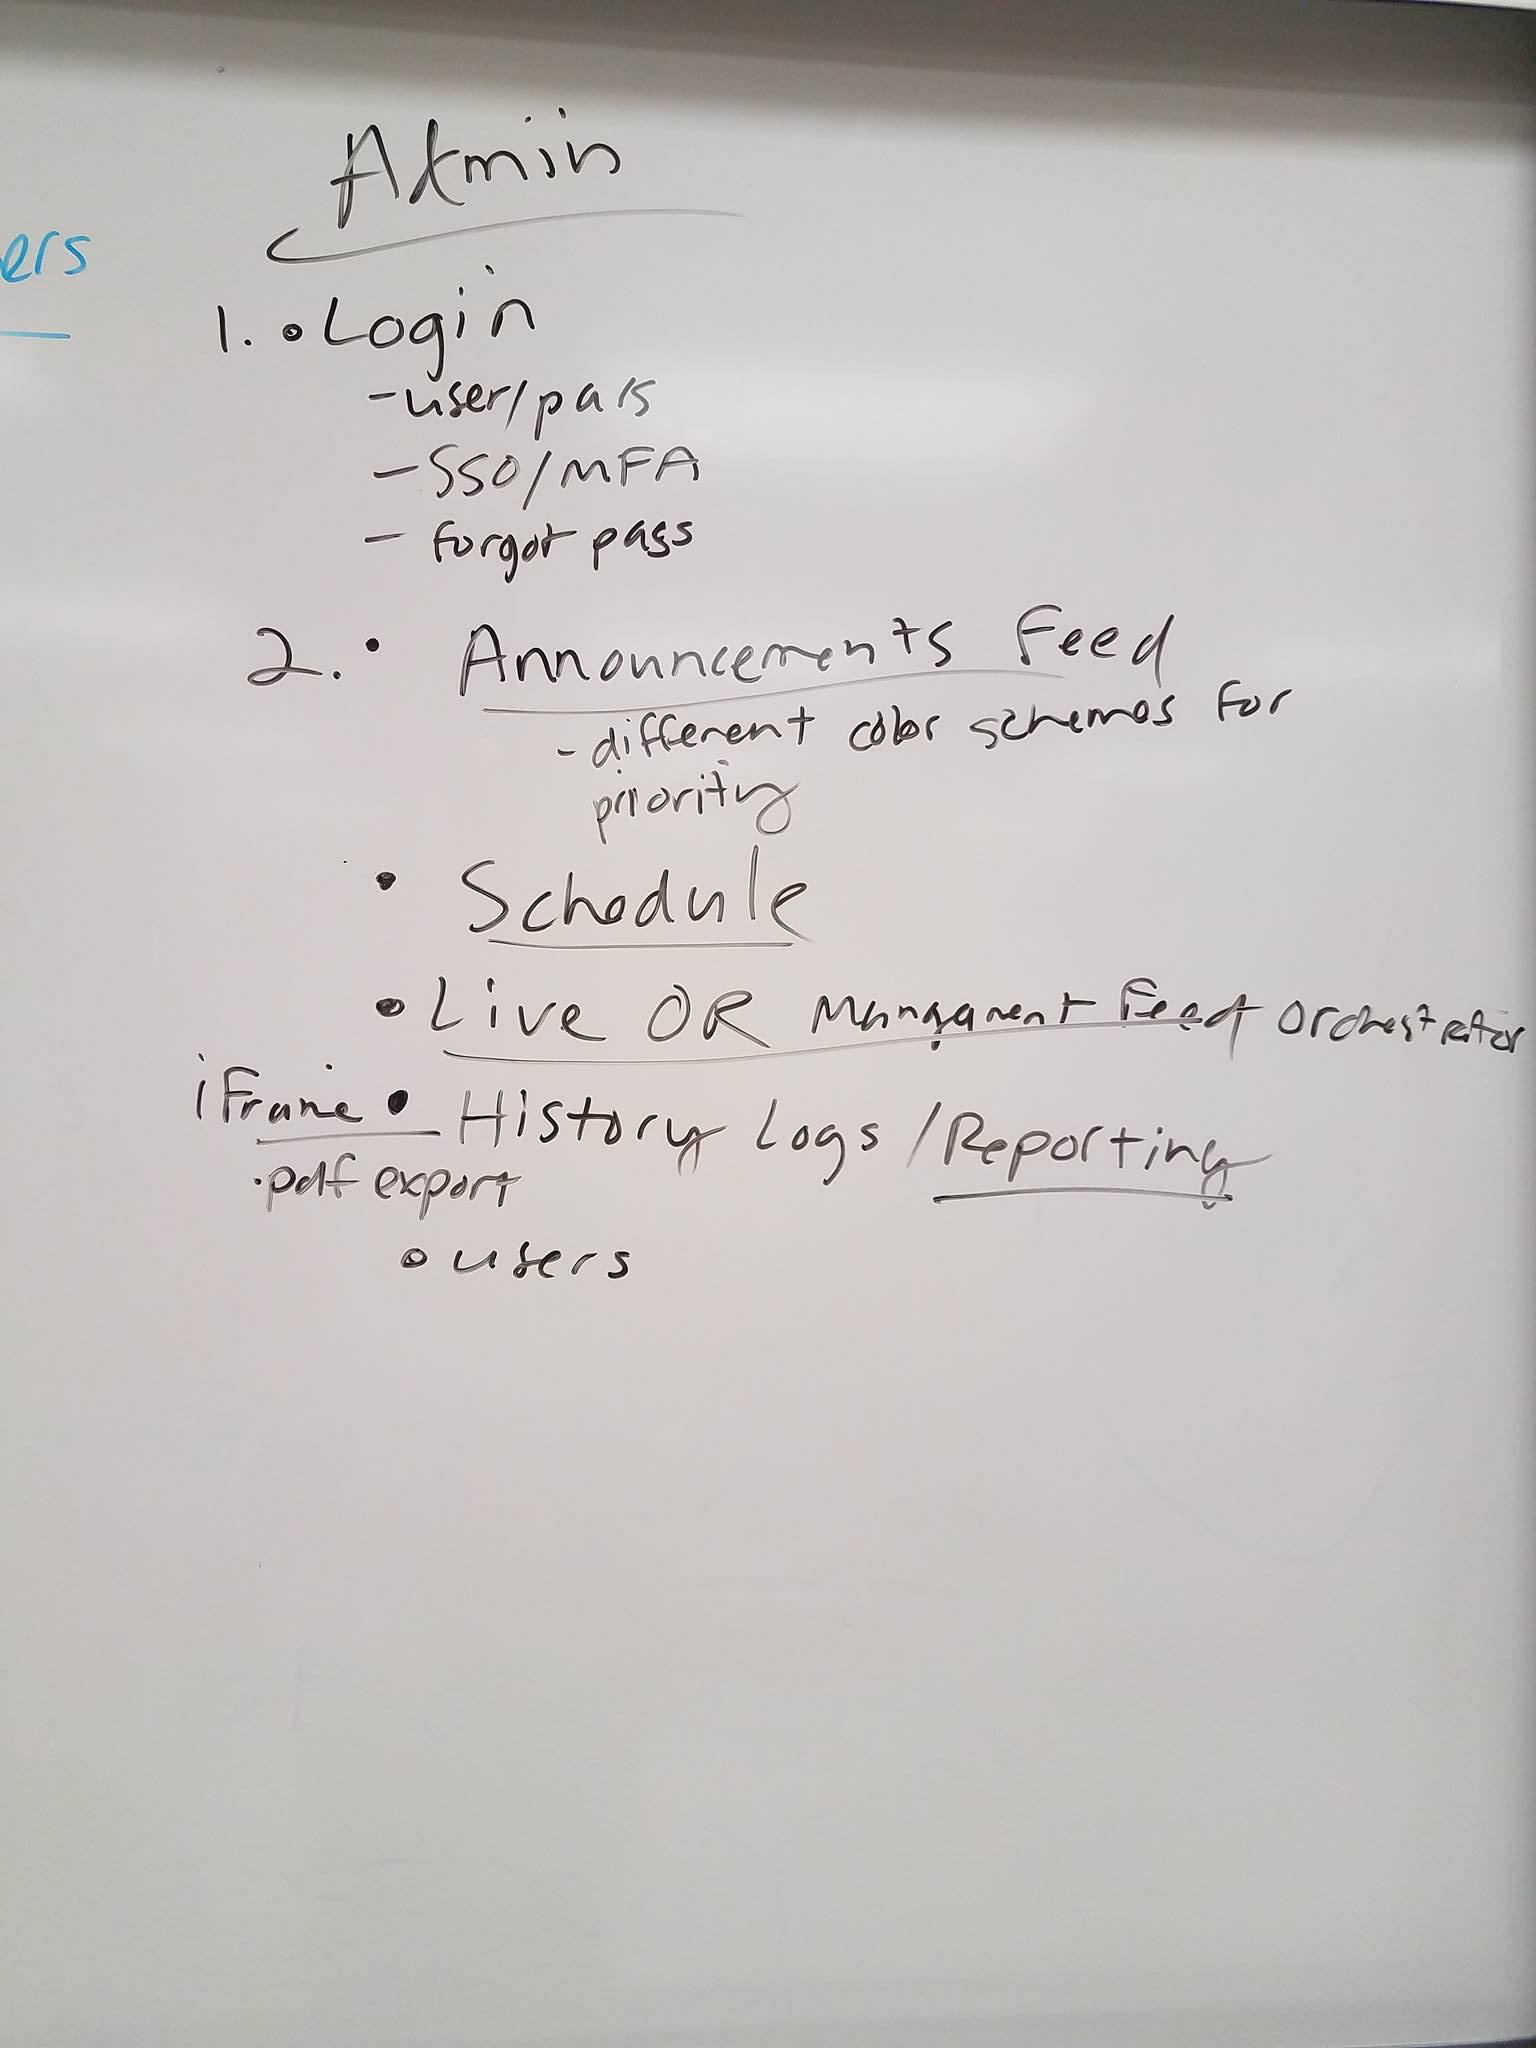 Admin
ers
1. • Login
- user/pass
- SSO/MFA
- forgot pass
2. • Announcements Feed
- different color schemes for
priority
• Schedule
• Live OR Mangament Feed Orchestrator
iFrame • History Logs / Reporting
• pdf export
• users